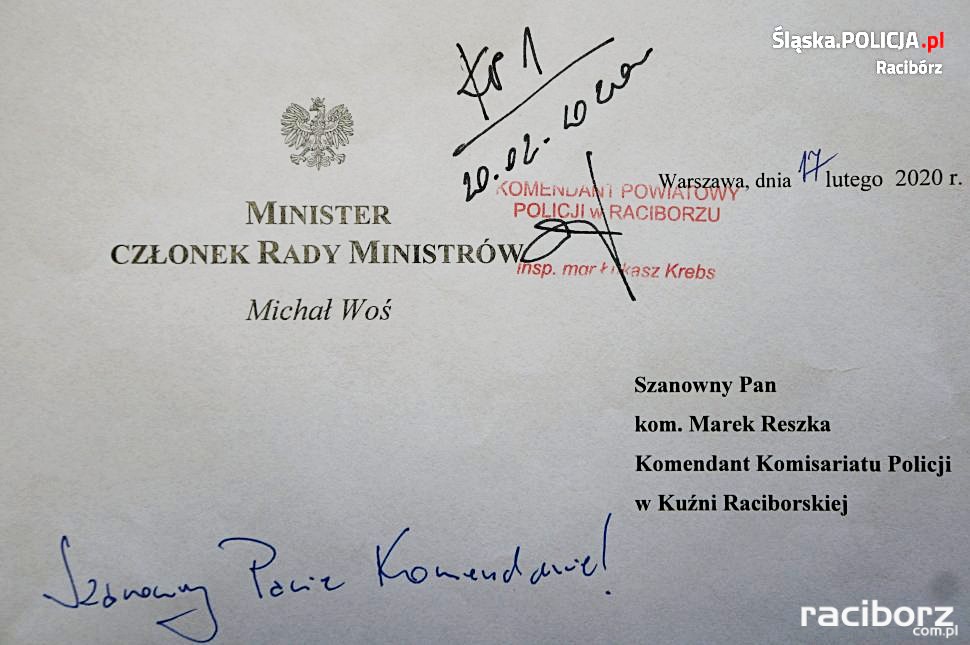 Śląska.POLICJA.pl
Racibórz
20.02.2020
Warszawa, dnia 17 lutego 2020 r.
KOMENDANT POWIATOWY
POLICJI w RACIBORZU
insp. mgr Łukasz Krebs
MINISTER
CZŁONEK RADY MINISTRÓW
Michał Woś
Szanowny Pan
kom. Marek Reszka
Komendant Komisariatu Policji
w Kuźni Raciborskiej
Szanowny Panie Komendancie!
raciborz
com.pl